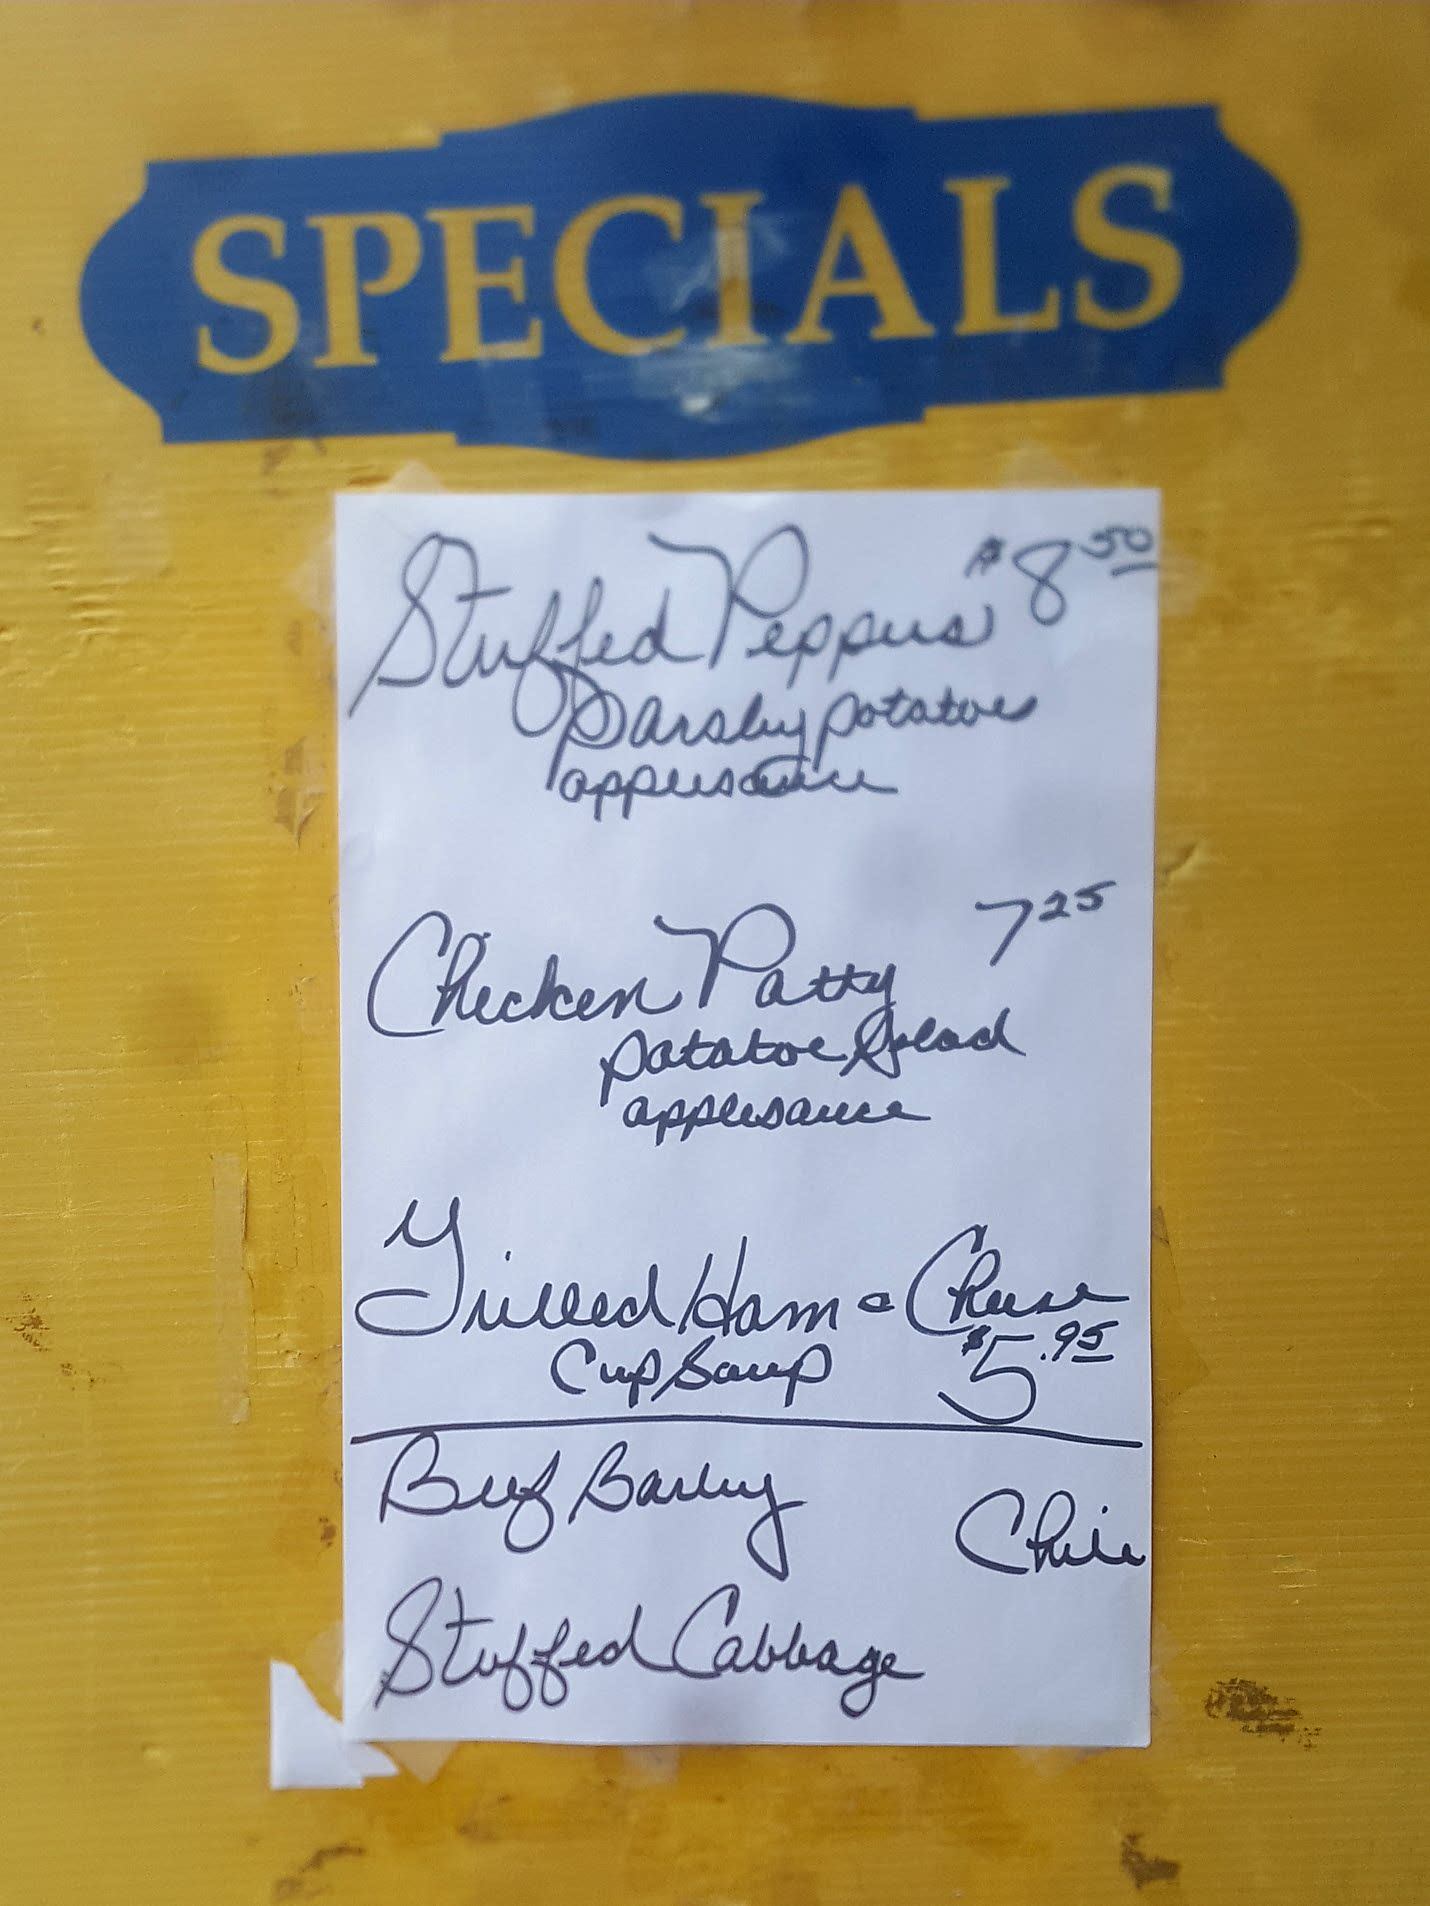 SPECIALS
Stuffed Peppers $8.50
Parsley potatoes
applesauce
Chicken Patty 7.25
potatoe Salad
applesauce
Grilled Ham & Cheese
Cup Soup $5.95
Beef Barley
Chili
Stuffed Cabbage